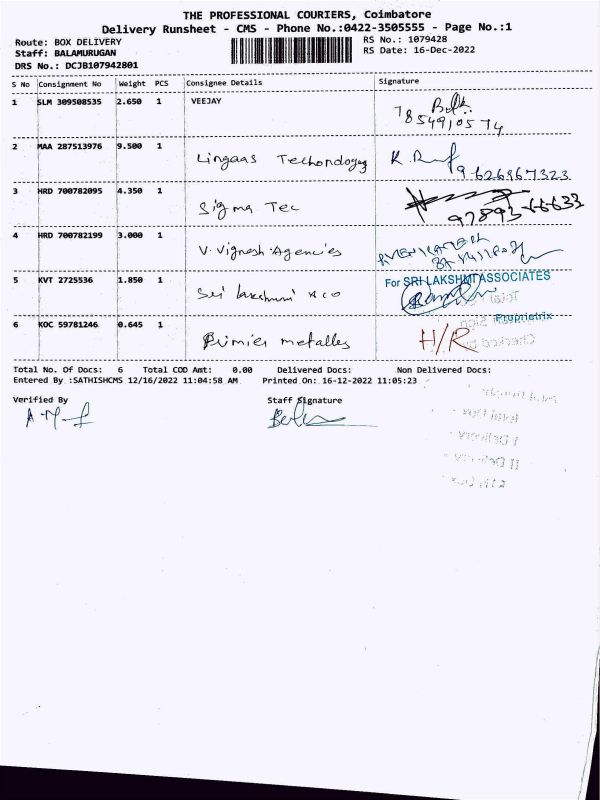 THE PROFESSIONAL COURIERS, Coimbatore
Delivery Runsheet - CMS - Phone No.:0422-3505555 - Page No.:1
Route: BOX DELIVERY
Staff: BALAMURUGAN
DRS No.: DCJB107942801
RS No.: 1079428
RS Date: 16-Dec-2022
S No Consignment No Weight PCS Consignee Details Signature
1 SLM 309508535 2.650 1 VEEJAY
7854910574
2 MAA 287513976 9.500 1 Lingaas
9626867323
3 HRD 700782095 4.350 1 Sigma Tec
4 HRD 700782199 3.000 1 V. Vignesh Agencies
5 KVT 2725536 1.850 1 Sri
For SRI LAKSHMI ASSOCIATES
Proprietrix
6 KOC 59781246 0.645 1 metalles H/R
Total No. Of Docs: 6 Total COD Amt: 0.00 Delivered Docs: Non Delivered Docs:
Entered By :SATHISHCMS 12/16/2022 11:04:58 AM Printed On: 16-12-2022 11:05:23
Verified By Staff Signature